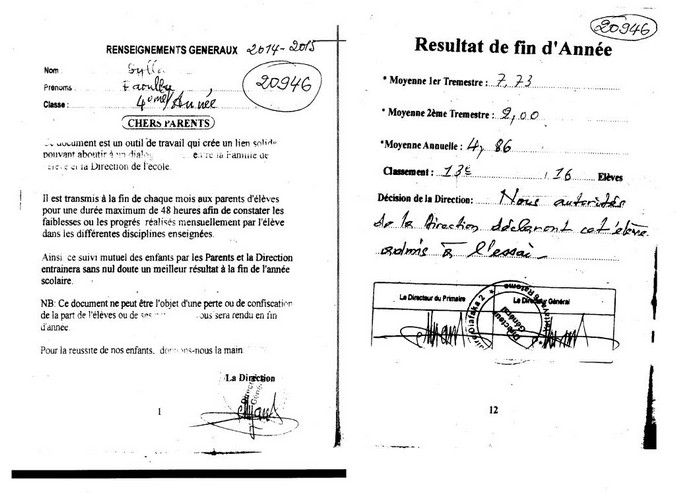 RENSEIGNEMENTS GENERAUX 2014-2015
Nom Sylla
Prénoms :
20946
Classe : 4ème Année
CHERS PARENTS
document est un outil de travail qui crée un lien solide
pouvant aboutir à un la Famille de
et la Direction de l'école.
Il est transmis à la fin de chaque mois aux parents d'élèves
pour une durée maximum de 48 heures afin de constater les
faiblesses ou les progrès réalisés mensuellement par l'élève
dans les différentes disciplines enseignées.
Ainsi ce suivi mutuel des enfants par les Parents et la Direction
entrainera sans nul doute un meilleur résultat à la fin de l'année
scolaire.
NB: Ce document ne peut être l'objet d'une perte ou de confiscation
de la part de l'élèves ou de vous sera rendu en fin
d'année.
Pour la reussite de nos enfants, donnons-nous la main
La Direction
1
20946
Resultat de fin d'Année
* Moyenne 1er Tremestre : 7,73
* Moyenne 2ème Tremestre : 2,00
*Moyenne Annuelle : 4,86
Classement : 13è 16 Elèves
Décision de la Direction: Nous autorités
de la Direction déclarons cet élève
admis à l'essai
Le Directeur du Primaire Le Directeur Général
Directeur Général
12